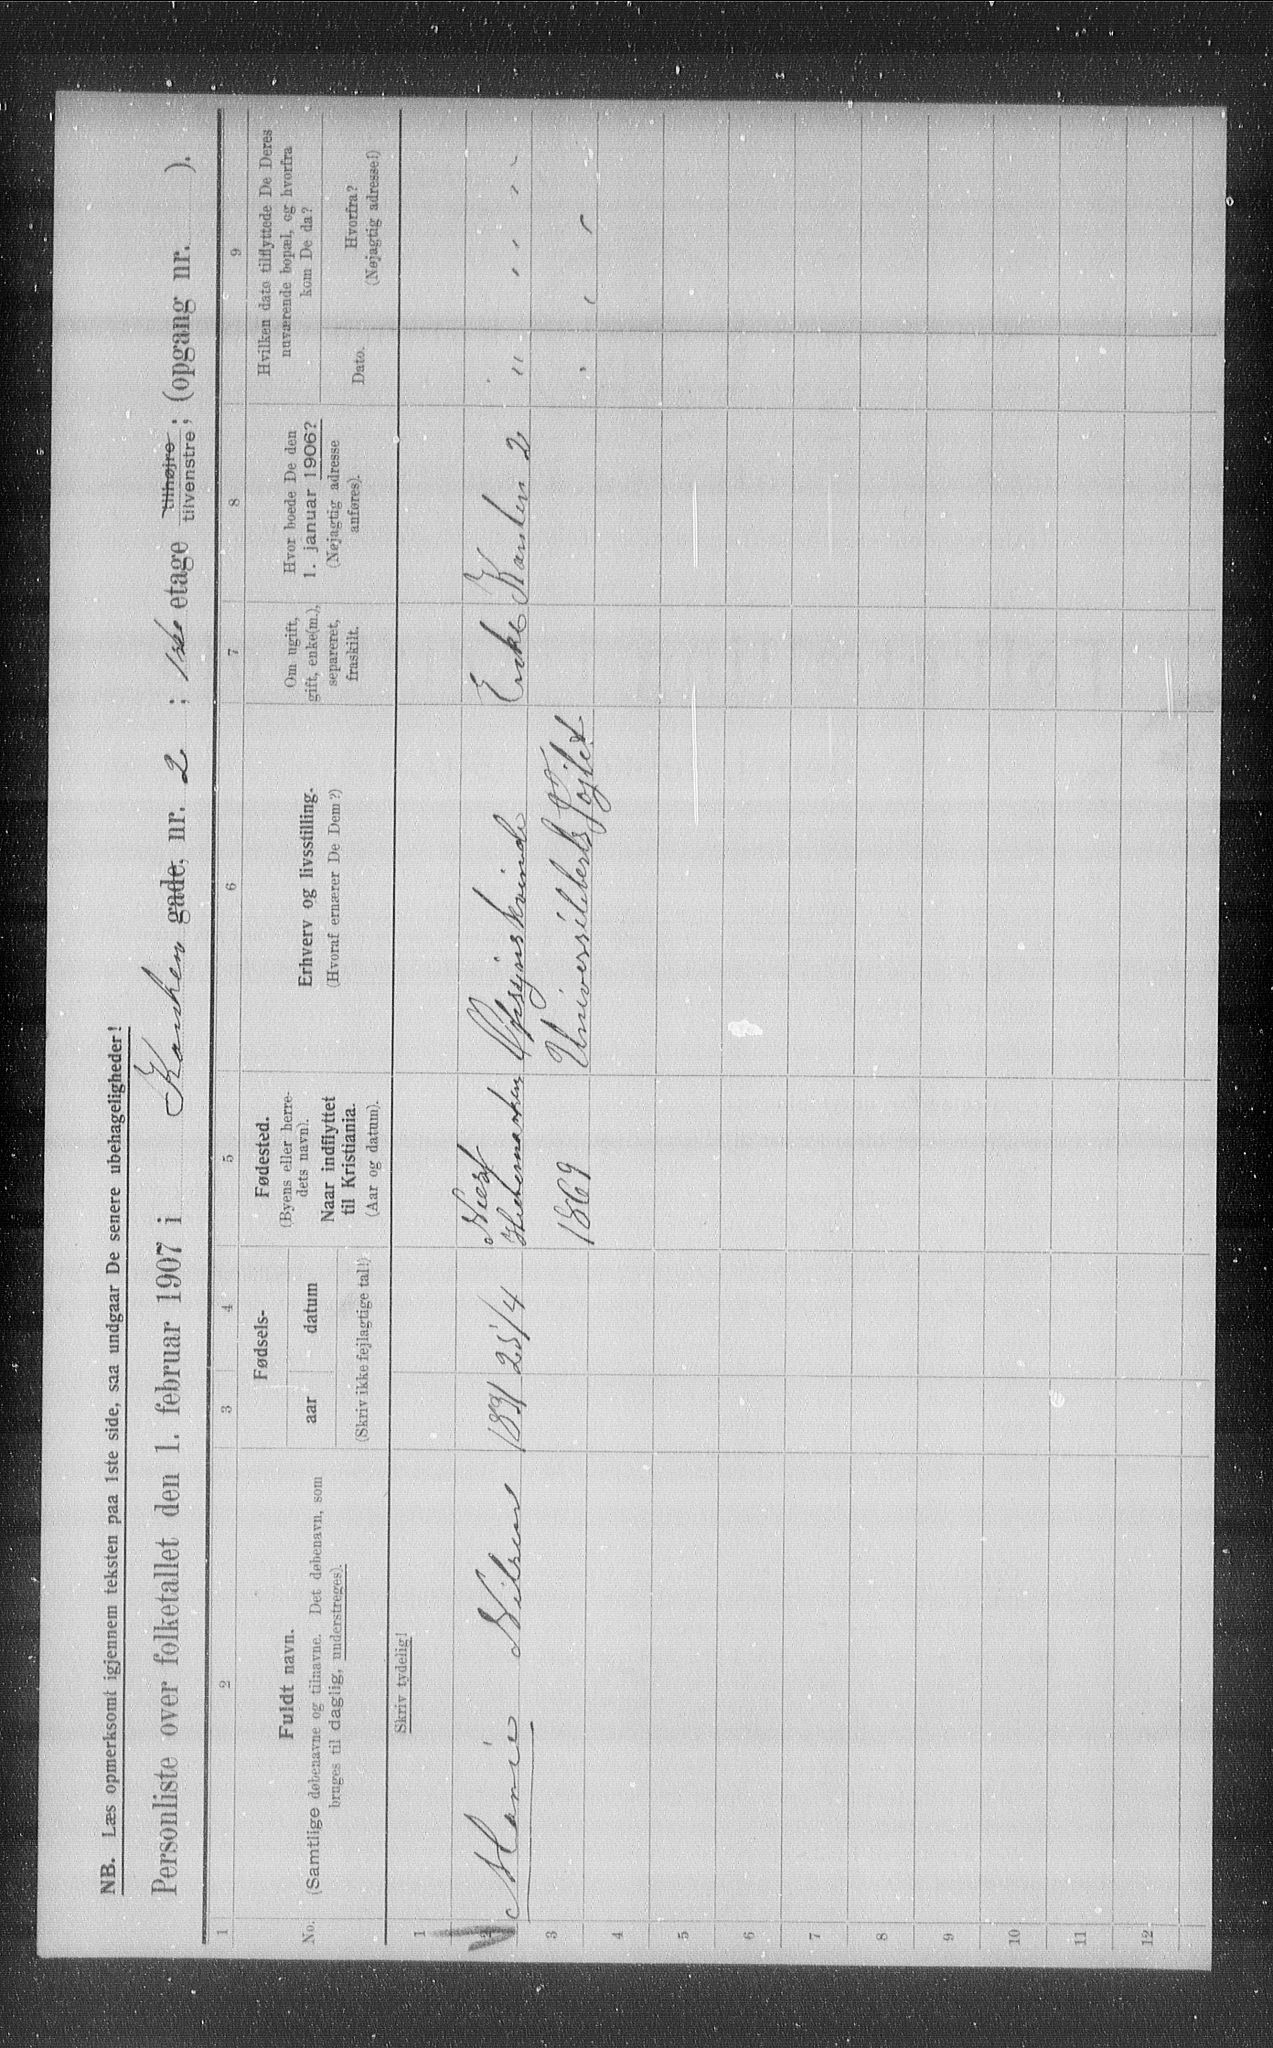 NB. Læs opmerksomt igjennem teksten paa 1ste side, saa undgaar De senere ubehageligheder!
Personliste over folketallet den 1. februar 1907 i Karsten gade, nr. 2 ; 1ste etage tilhøjre tilvenstre; (opgang nr. ).
1 2 3 4 5 6 7 8 9
No.
Fuldt navn.
(Samtlige døbenavne og tilnavne. Det døbenavn, som
bruges til daglig, understreges).
Fødsels-
aar datum
(Skriv ikke fejlagtige tal!)
Fødested.
(Byens eller herre-
dets navn).
Naar indflyttet
til Kristiania.
(Aar og datum).
Erhverv og livsstilling.
(Hvoraf ernærer De Dem?)
Om ugift,
gift, enke(m.),
separeret,
fraskilt.
Hvor boede De den
1. januar 1906?
(Nøjagtig adresse
anføres).
Hvilken dato tilflyttede De Deres
nuværende bopæl, og hvorfra
kom De da?
Dato.
Hvorfra?
(Nøjagtig adresse!)
Skriv tydelig!
1
2 Marie Nilsen 1831 25/4 Næs Hedemarken Opsynskvinde Enke Karsten 2 " " "
3 1869 Universitetets Tojlet " " "
4
5
6
7
8
9
10
11
12